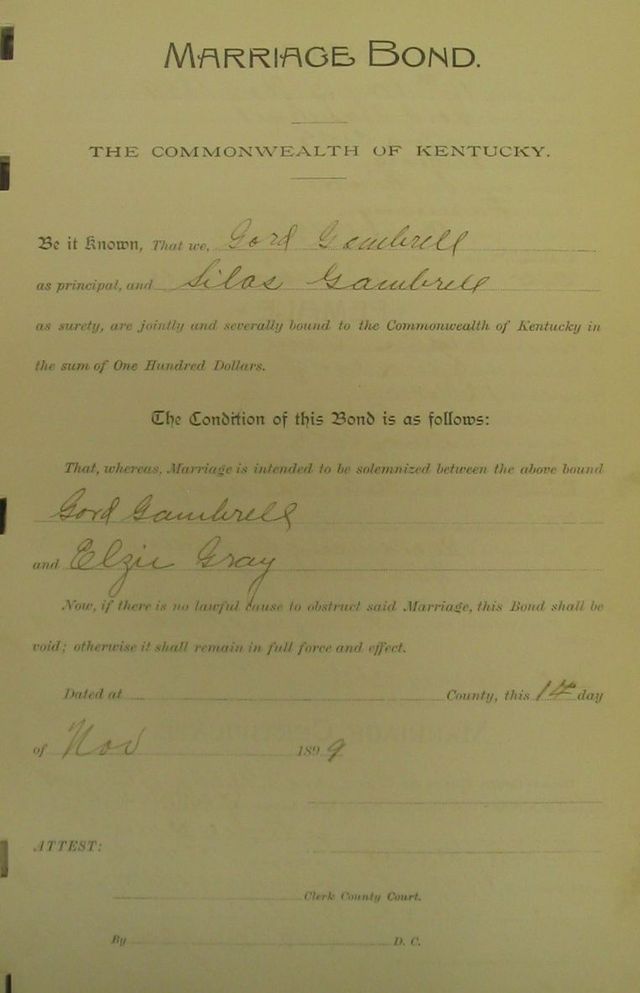 MARRIAGE BOND.
THE COMMONWEALTH OF KENTUCKY.
Be it Known, That we, Gord Gambrell
as principal, and Silas Gambrell
as surety, are jointly and severally bound to the Commonwealth of Kentucky in
the sum of One Hundred Dollars.
The Condition of this Bond is as follows:
That, whereas, Marriage is intended to be solemnized between the above bound
Gord Gambrell
and Elzie Gray
Now, if there is no lawful cause to obstruct said Marriage, this Bond shall be
void; otherwise it shall remain in full force and effect.
Dated at County, this 14 day
of Nov 1899
ATTEST:
Clerk County Court.
By D. C.